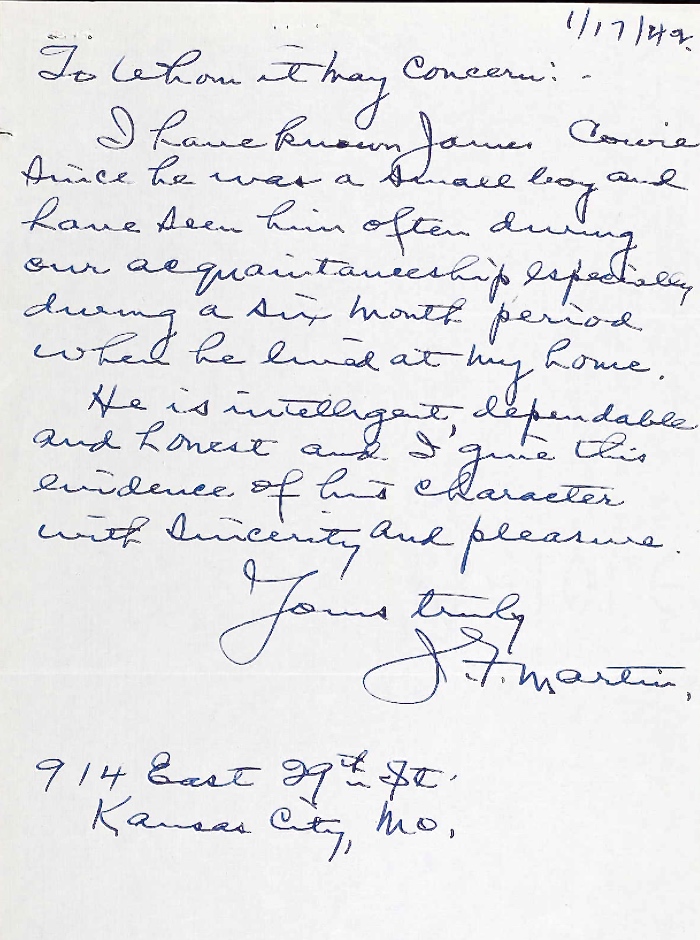 1/17/49.
To Whom it may Concern: -
I have known James Cowie
since he was a small boy and
have seen him often during
our acquaintanceship especially
during a six month period
when he lived at my home.
He is intelligent, dependable
and honest and I give this
evidence of his character
with sincerity and pleasure.
Yours truly
J. F. Martin.
914 East 29th St.
Kansas City, Mo.